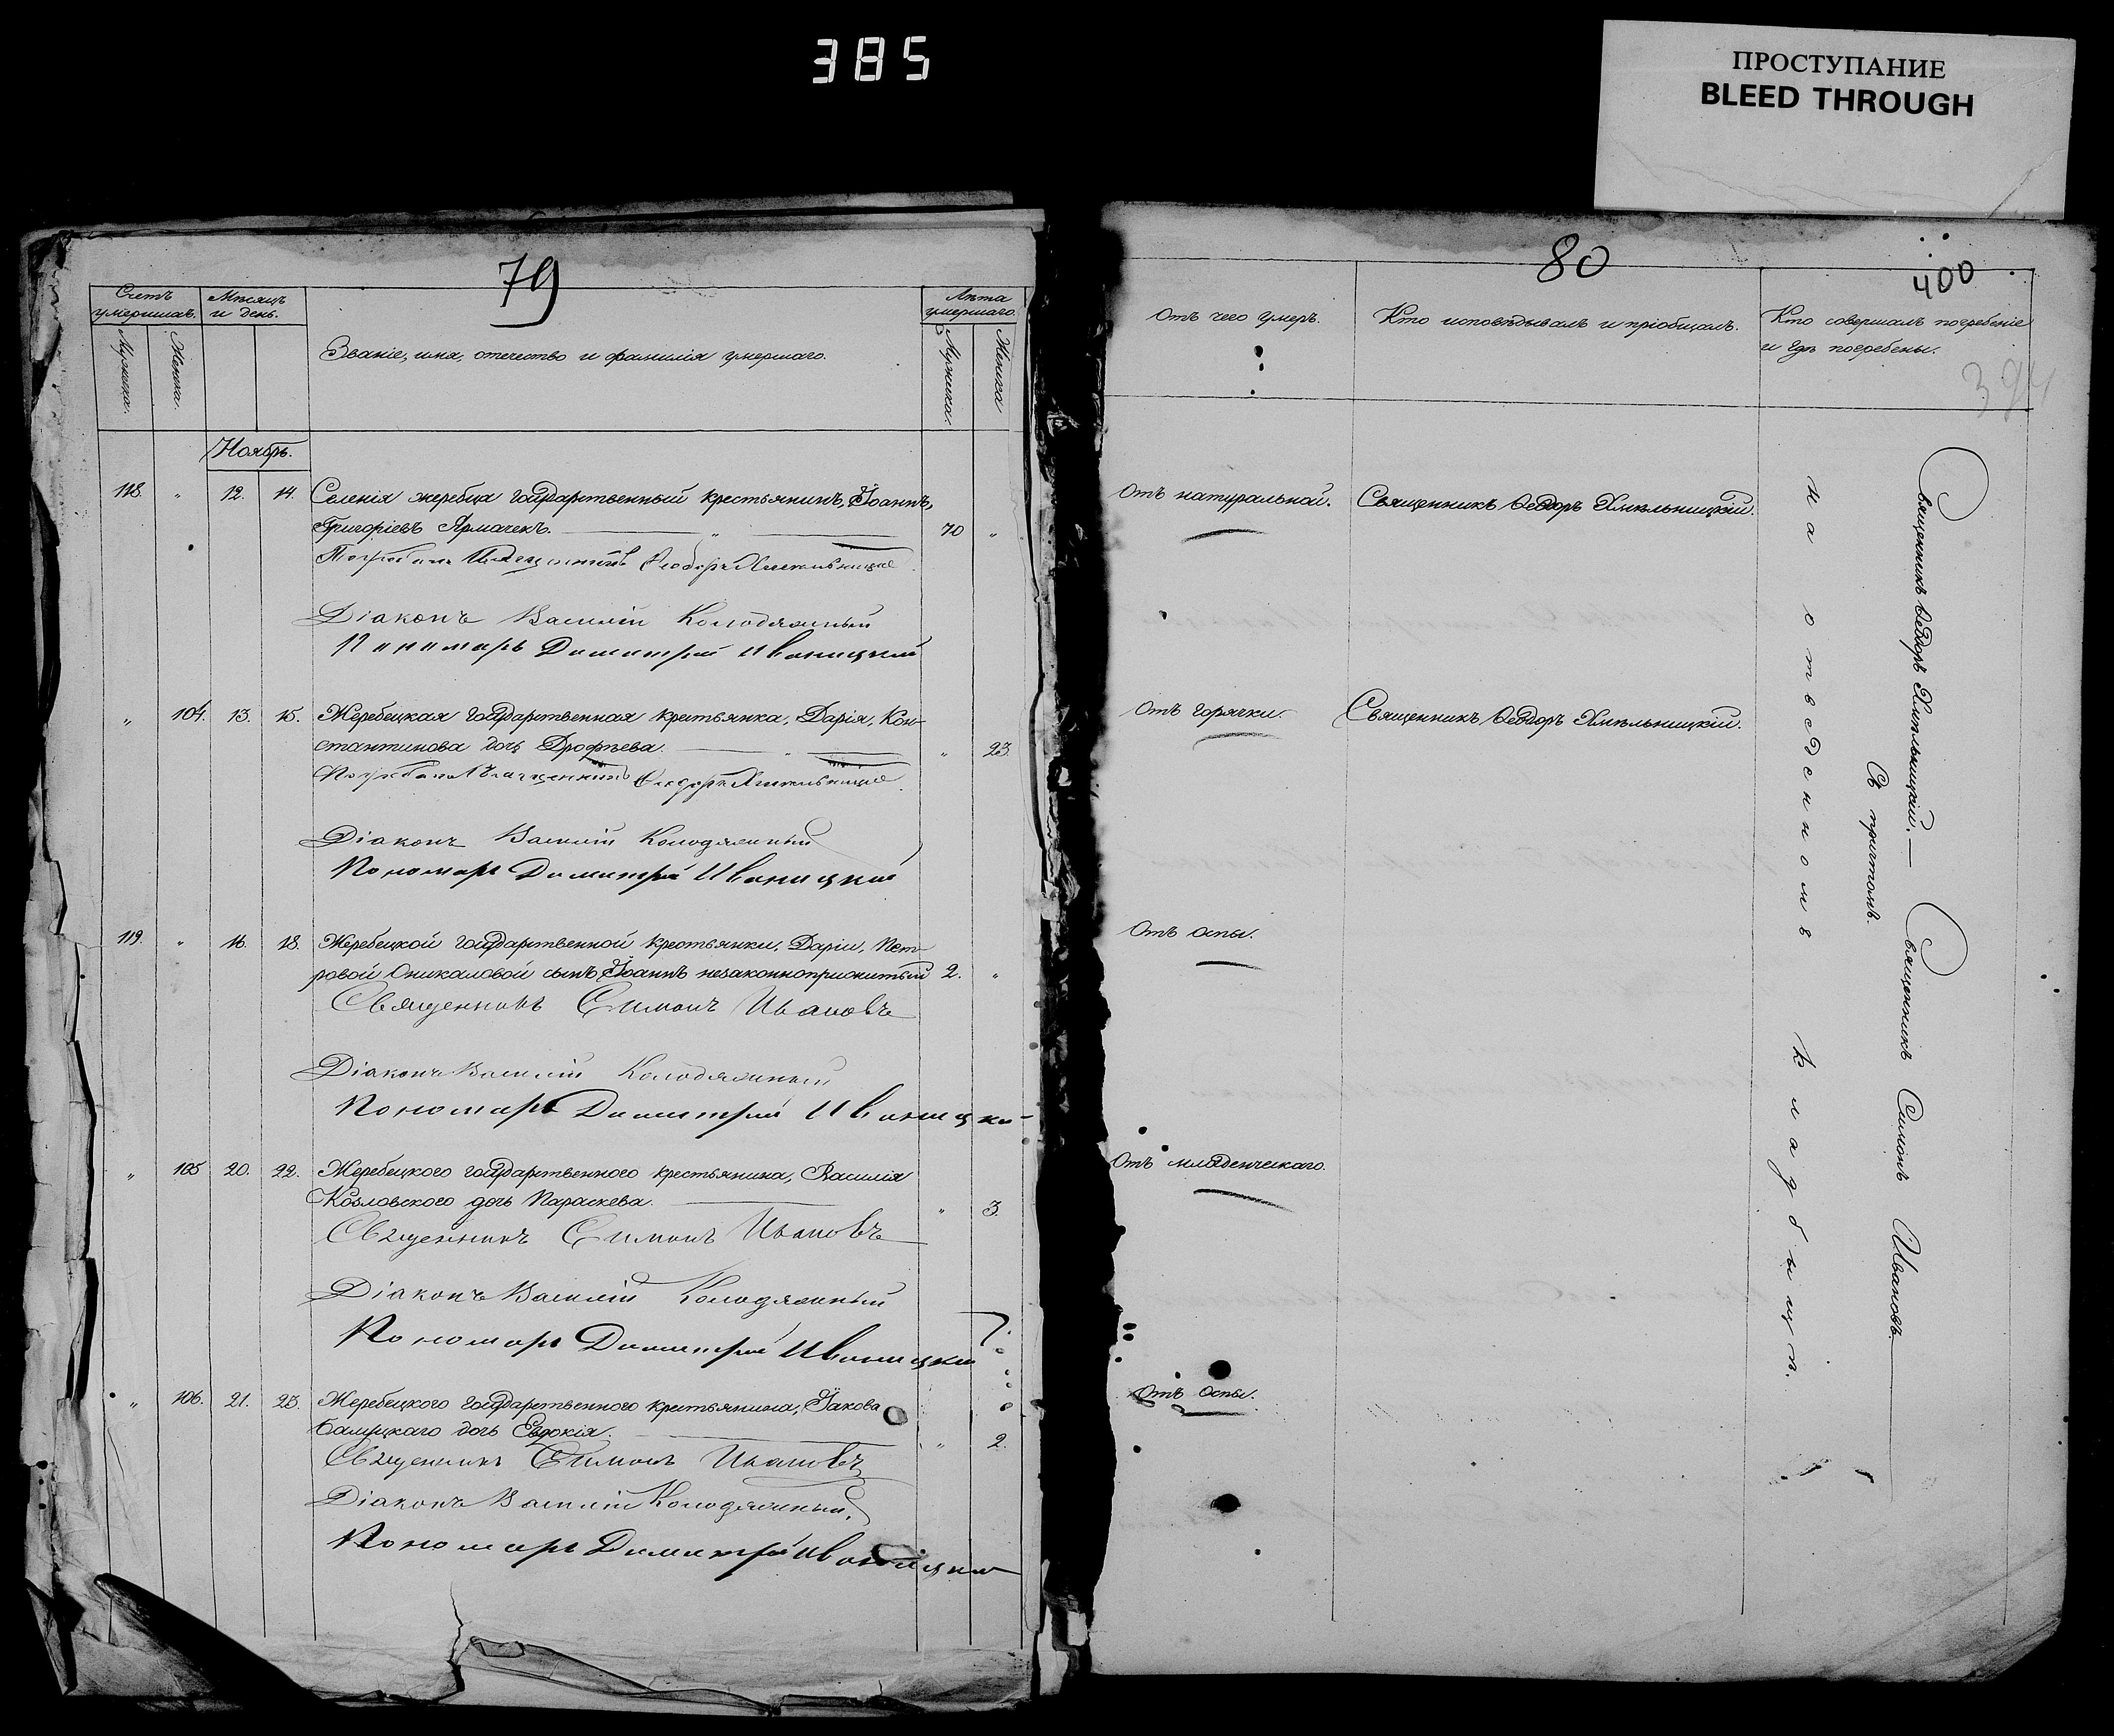 385
ПРОСТУПАНИЕ
BLEED THROUGH
79
Счетъ умершихъ.
Мѣсяцъ и день.
Званіе, имя, отечество и фамилія умершаго.
Лѣта умершаго.
Мужска.
Женска.
Мужска.
Женска
Ноябрь.
118. " 12. 14. Селенія жеребца государственный крестьянинъ, Іоаннъ,
Григоріевъ Ярмачекъ. " 70 "
Погребалъ Священникъ Ѳеодоръ Хмельницкій
Діаконъ Василій Колодяжный
Пономарь Димитрій Иваницкий
" 104. 13. 15. Жеребецкая государственная крестьянка, Дарія, Кон-
стантинова дочь Дрофѣева. " " 23
Погребалъ Священникъ Ѳеодоръ Хмельницкій
Діаконъ Василій Колодяжный
Пономарь Димитрій Иваницкий
119. " 16. 18. Жеребецкой государственной крестьянки, Даріи, Пет-
ровой Оникаловой сынъ Іоаннъ незаконноприжитый 2. "
Священникъ Симонъ Ивановъ
Діаконъ Василій Колодяжный
Пономарь Димитрій Иваницкий
" 105 20. 22. Жеребецкого государственного крестьянина, Василія
Козловского дочь Параскева. " 3.
Священникъ Симонъ Ивановъ
Діаконъ Василій Колодяжный
Пономарь Димитрій Иваницкий
" 106. 21. 23. Жеребецкого государственного крестьянина, Іакова
дочь Евдокія. " 2.
Священникъ Симонъ Ивановъ
Діаконъ Василій Колодяжный.
Пономарь Димитрій Иваницкий
80
400
Отъ чего умеръ.
Кто исповѣдывалъ и пріобщалъ.
Кто совершалъ погребеніе
и гдѣ погребены.
Отъ натуральной. Священникъ Ѳеодоръ Хмѣльницкій.
Отъ горячки. Священникъ Ѳеодоръ Хмѣльницкій.
Отъ оспы.
Отъ младенческаго.
Отъ оспы.
на отведенномъ кладбищѣ.
Священникъ Ѳеодоръ Хмѣльницкій. — Священникъ Симонъ Ивановъ.
Съ причтомъ.